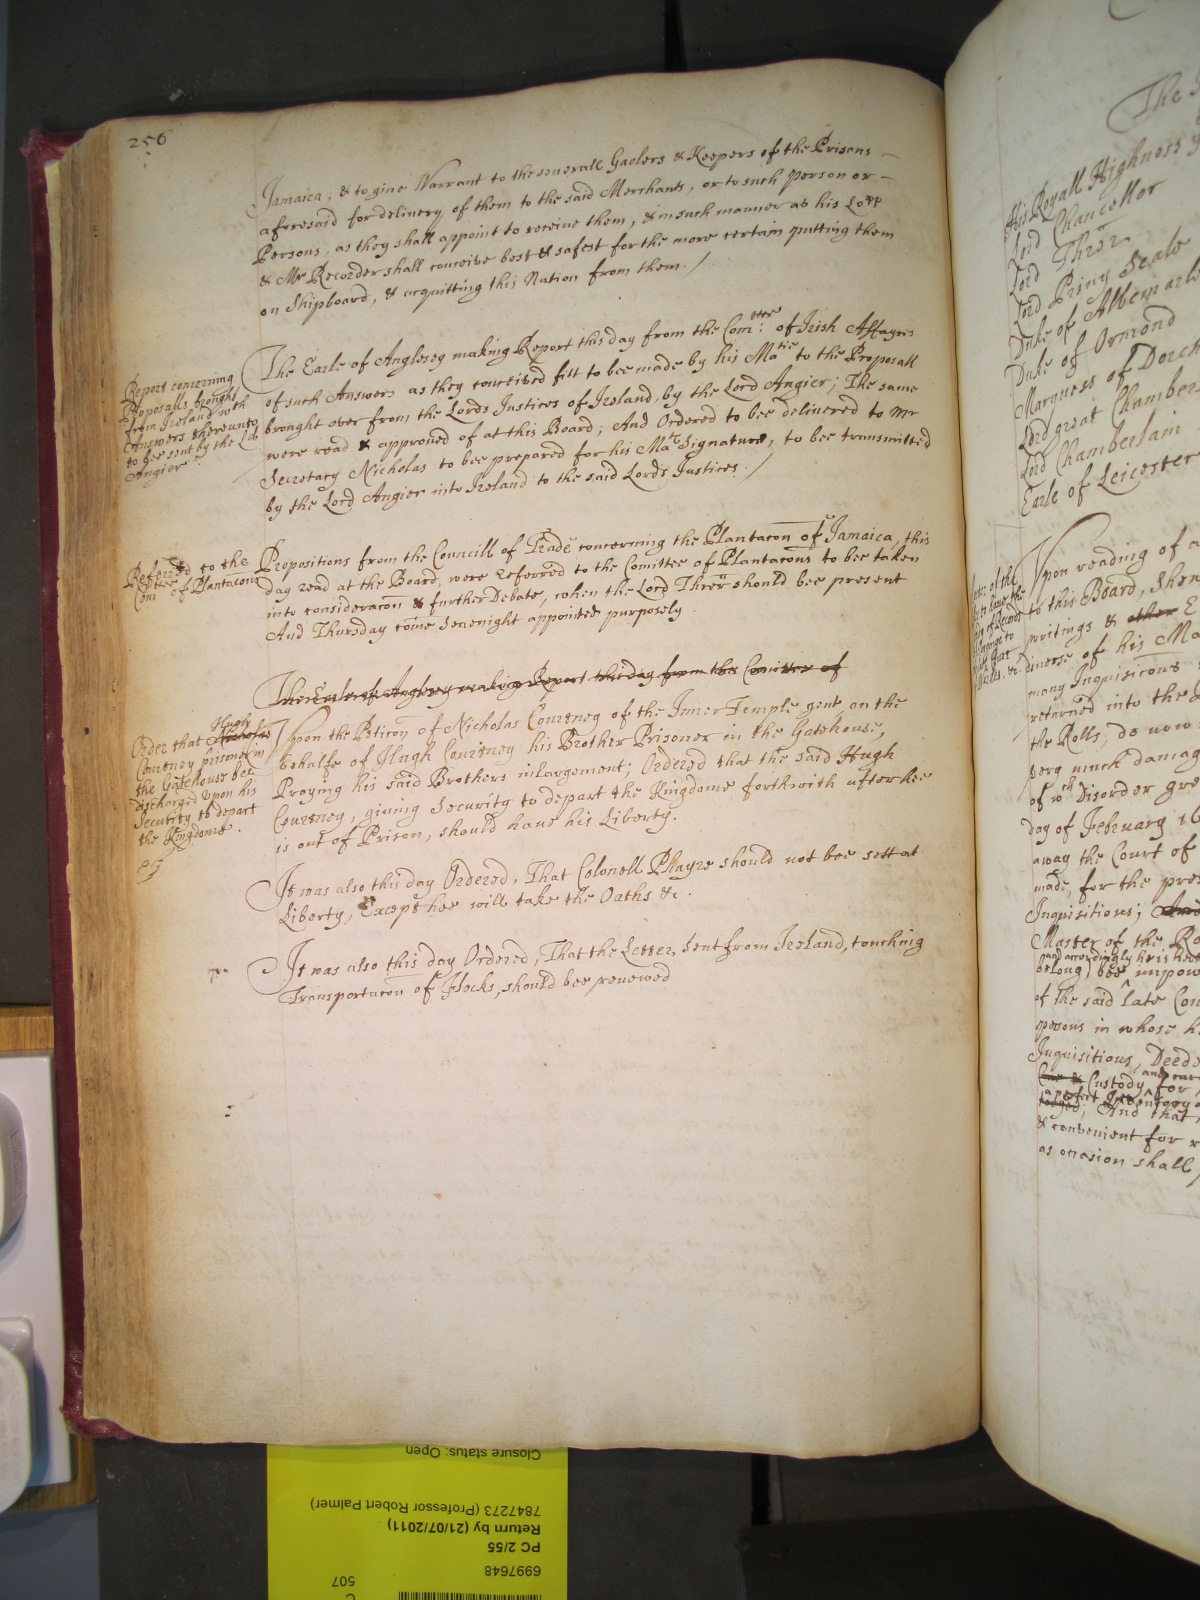 256
Jamaica; & to giue Warrant to the seuerall Gaolers & Keepers of the Prisons
aforesaid for deliuery of them to the said Merchants, or to such person or
Persons, as they shall appoint to receiue them, & in such manner as his Lopp
& Mr Recorder shall conceive best & safest for the more certain putting them
on Shipboard, & acquitting this Nation from them./
Report concerning
Proposalls brought
from Ireland with
Answers thereunto
to bee sent by the Ld
Angier
The Earle of Anglesey making Report this day from the Com:ttee of Irish Affayres
of such Answers as they conceived fitt to bee made by his Matie to the Proposall
brought over from the Lords Justices of Ireland, by the Lord Angier; The same
were read & approued of at this Board; And Ordered to bee deliuered to Mr
Secretary Nicholas to bee prepared for his Mats Signature, to bee transmitted
by the Lord Angier into Ireland to the said Lords Justices./
Refered to the
Comttee of Plantacons
Propositions from the Councill of Trade concerning the Plantacon of Jamaica, this
day read at the Board, were referred to the Comittee of Plantacons to bee taken
into consideracon & further Debate, when the Lord Threr should bee present
And Thursday come Seuenight appointed purposely.
The Earle of Anglesey making Report this day from the Comittee of
Order that Nicholas Hugh
Courtney prisoner in
the Gatehouse bee
discharged upon his
Security to depart
the Kingdome.
Upon the Peticon of Nicholas Courtney of the Inner Temple gent on the
behalfe of Hugh Courtney his Brother Prisoner in the Gatehouse,
Praying his said Brothers inlargement; Ordered that the said Hugh
Courtney, giuing Security to depart the Kingdome forthwith after hee
is out of Prison, should haue his Liberty.
It was also this day Ordered, That Colonell Phayre should not bee sett at
Liberty, Except hee will take the Oaths &c.
It was also this day Ordered, That the Letter, sent from Ireland, touching
Transportacon of Flocks, should bee renewed
The
His Royall Highness
Lord Chancellor
Lord Threr
Lord Priuy Seale
Duke of Albemarle
Duke of Ormond
Marquess of Dorch
Lord great Chamber
Lord Chamberlain
Earle of Leicester
Upon reading of a
to this Board, Shew
writings & other E
diuerse of his Ma
many Inquisicons
returned into the
the Rolls, do now
very much damag
of wch Disorder gre
day of February 16
away the Court of
made, for the pres
Inquisitions; And
Master of the Ro
and accordingly hee is her
belong) bee impow
of the said late Cou
persons in whose h
Inquisitions, Deeds
Custody for
And that
& convenient for
as occasion shall
Closure status: Open
7847273 (Professor Robert Palmer)
Return by (21/07/2011)
PC 2/55
6997648
507